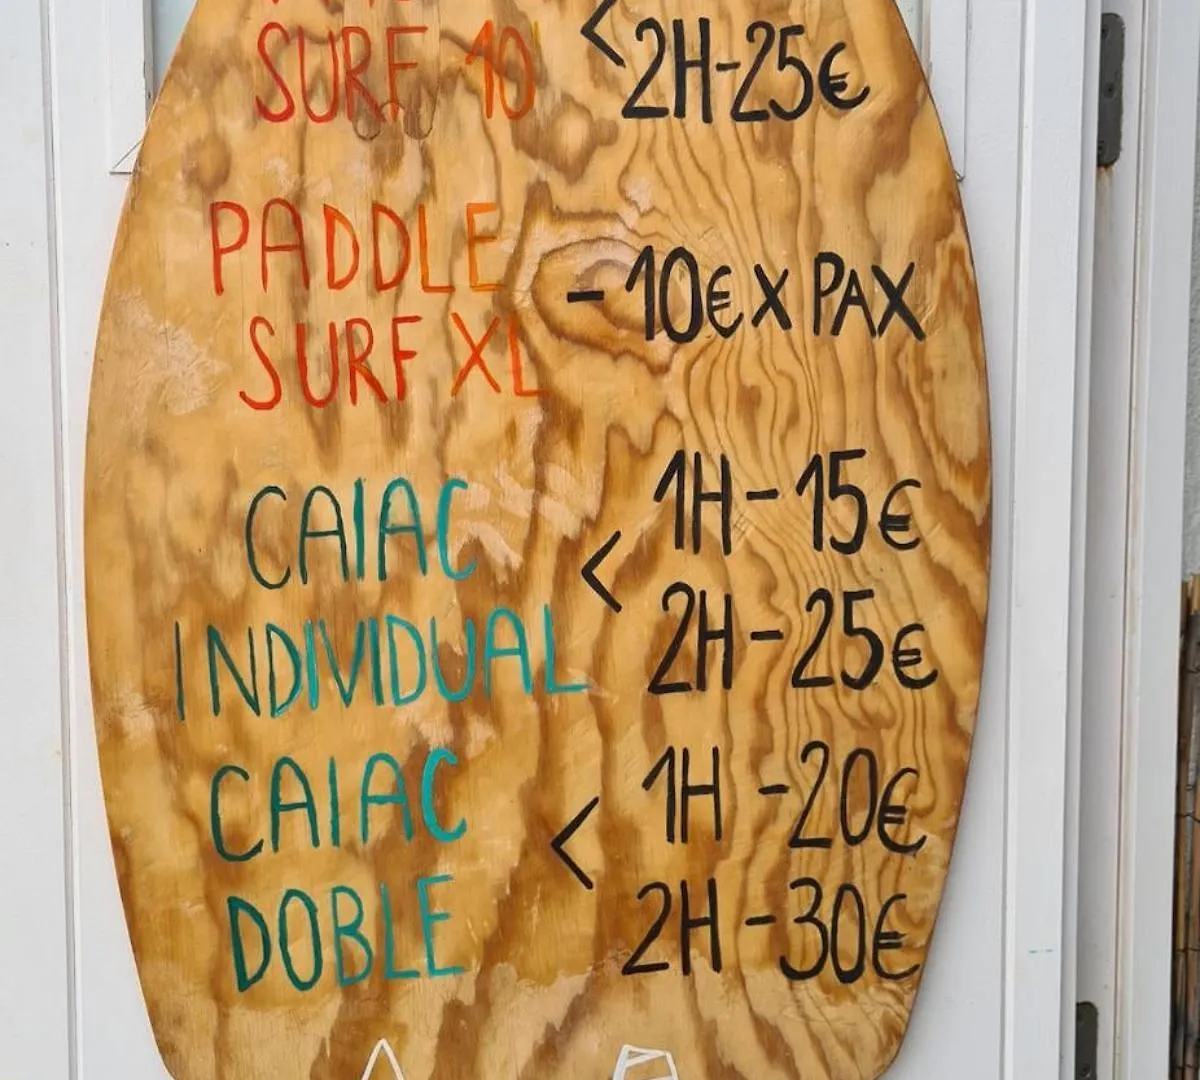 SURF 10
2H-25€
PADDLE
SURF XL
- 10€ X PAX
CAIAC
INDIVIDUAL
1H - 15€
2H - 25€
CAIAC
DOBLE
1H - 20€
2H - 30€